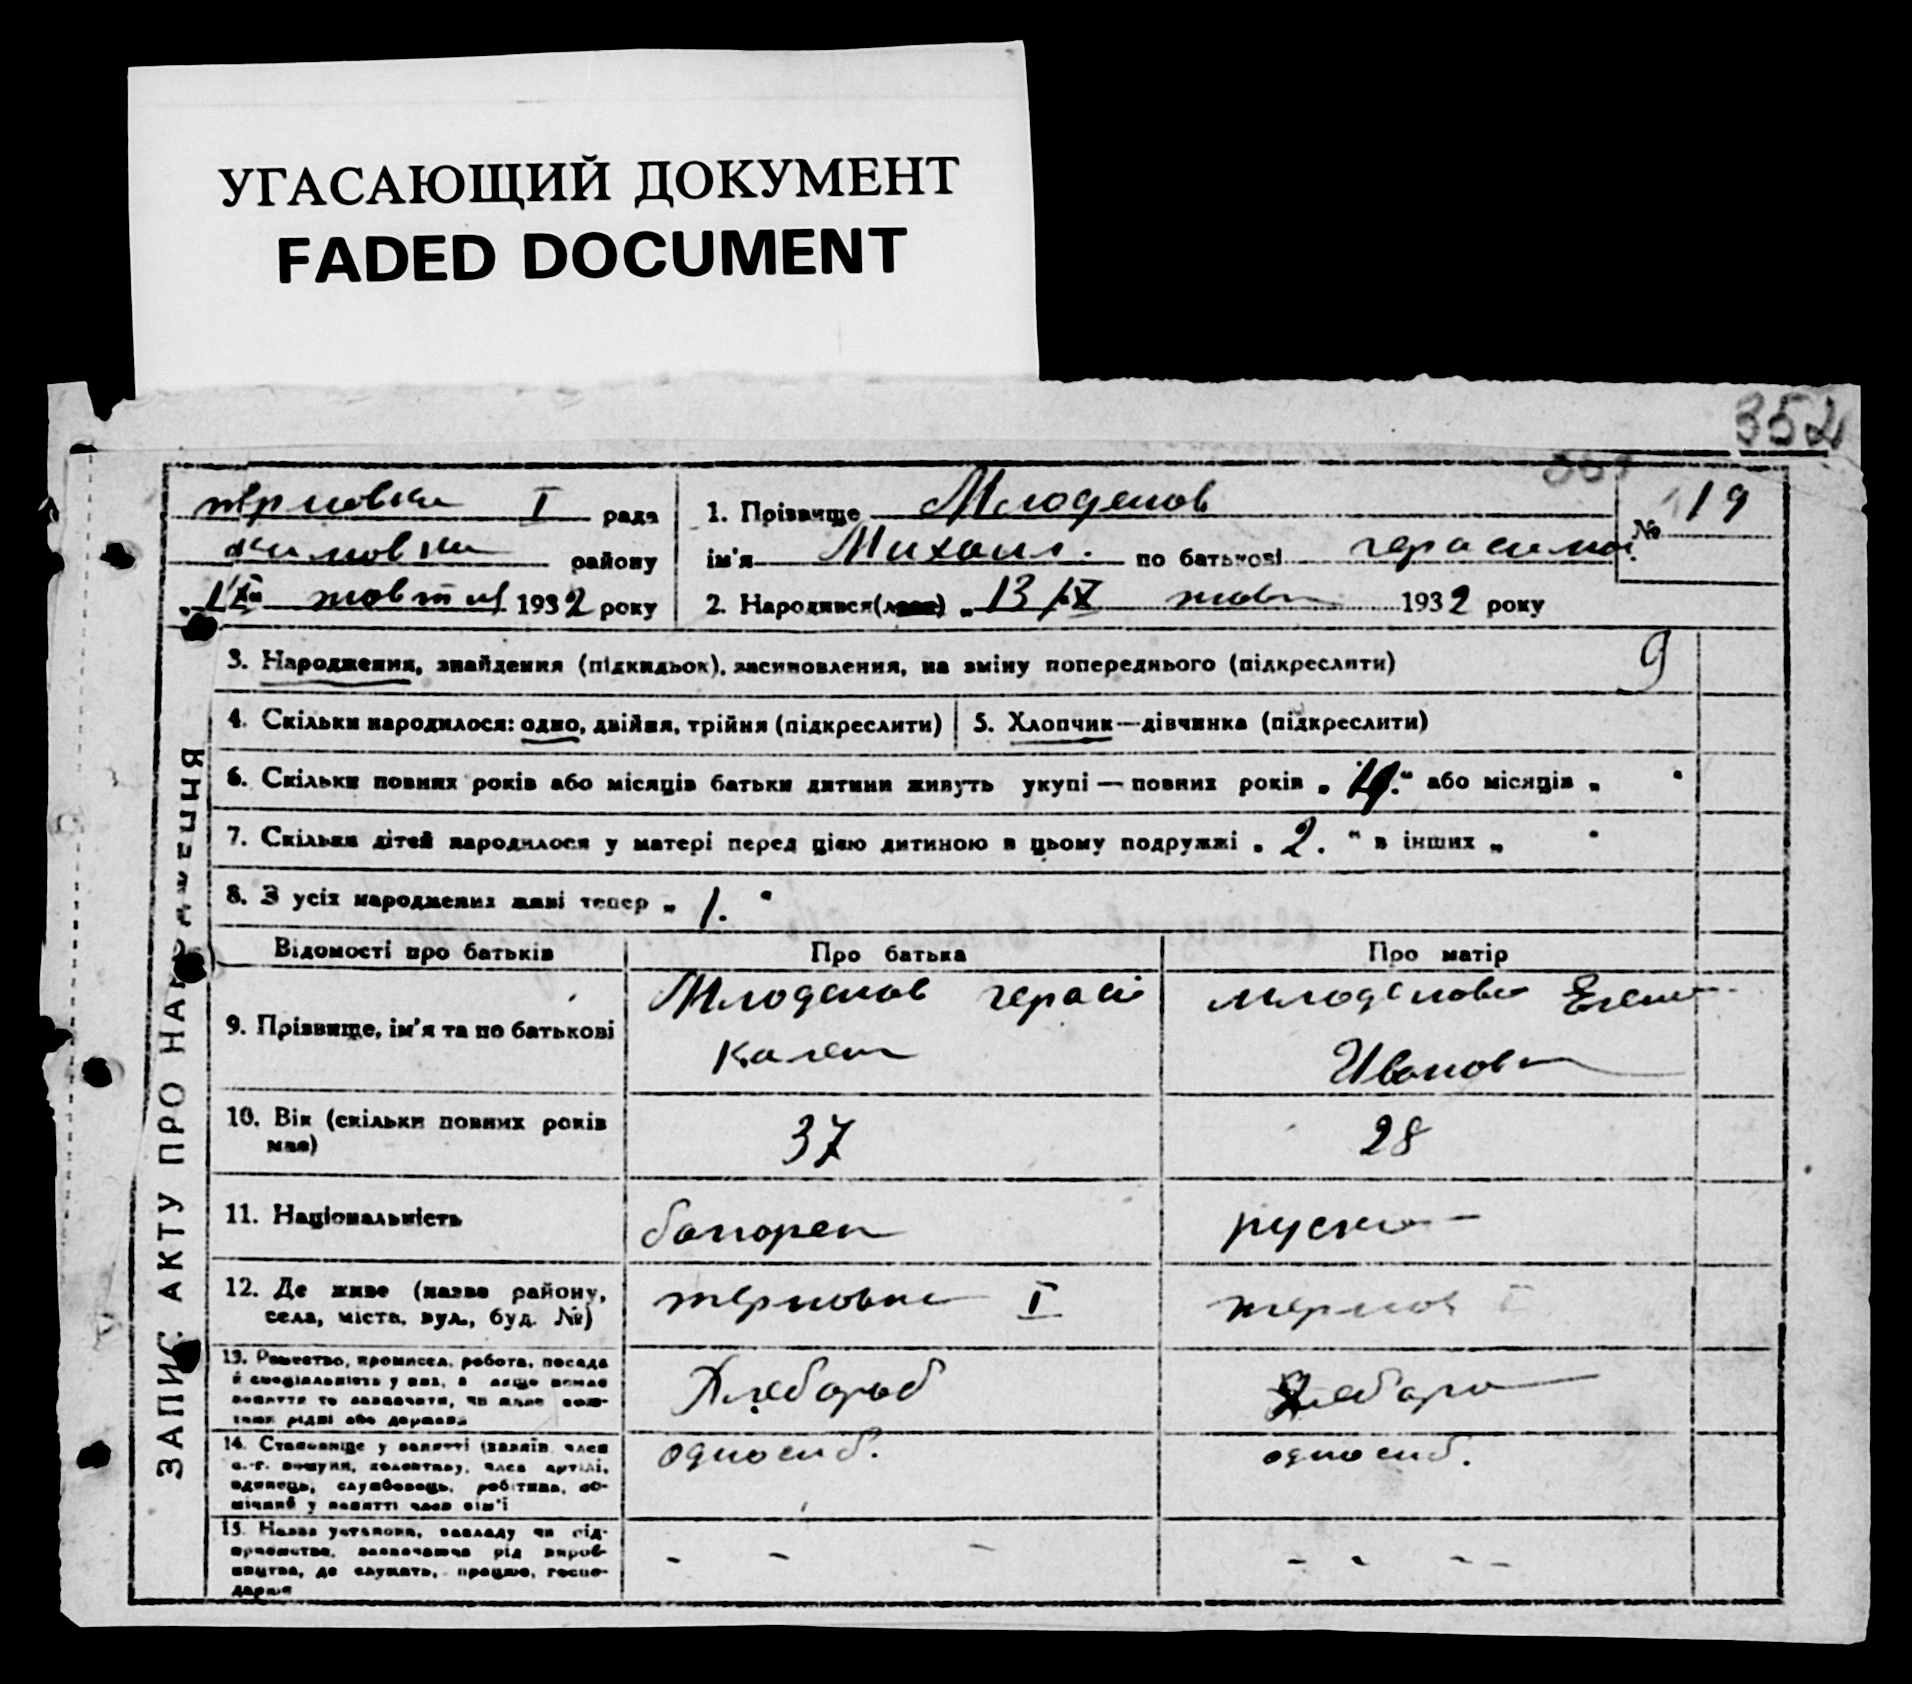 УГАСАЮЩИЙ ДОКУМЕНТ
FADED DOCUMENT
352
терновка I рада
району
жовтня 1932 року
1. Прізвище Младенов
ім'я Михаил. по батькові герасимов.
2. Народився(лась) „ 13/ІХ 1932 року
№ 19
3. Народження, знайдення (підкидьок), засиновлення, на зміну попереднього (підкреслити) 9
4. Скільки народилося: одно, двійня, трійня (підкреслити)
5. Хлопчик—дівчинка (підкреслити)
6. Скільки повних років або місяців батьки дитини живуть укупі — повних років „ “ або місяців „ “
7. Скільки дітей народилося у матері перед цією дитиною в цьому подружжі „ 2. “ в інших „ “
8. З усіх народжених живі тепер „ 1. “
ЗАПИС АКТУ ПРО НАРОДЖЕННЯ
Відомості про батьків
Про батька
Про матір
9. Прізвище, ім'я та по батькові
Младенов герасі
младенова Елена
Ивановн
10. Вік (скільки повних років
має)
37
28
11. Національність
болорен
руска
12. Де живе (назва району,
села, міста, вул., буд. №)
терновка I
тернов I
13. Ремество, промисел, робота, посада
й спеціальність у них, а якщо немає
заняття то зазначити, чи живе кош-
тами рідні або держави
Хлебароб
Хлебаро
14. Становище у занятті (хазяїн, член
с.-г. комуни, колективу, член артілі,
одинець, службовець, робітник, по-
мічний у занятті член сім'ї
односиб.
односиб.
15. Назва установи, закладу чи під-
приємства, зазначаючи рід вироб-
ництва, де служать, працює, госпо-
дарює
- - -
- - - -